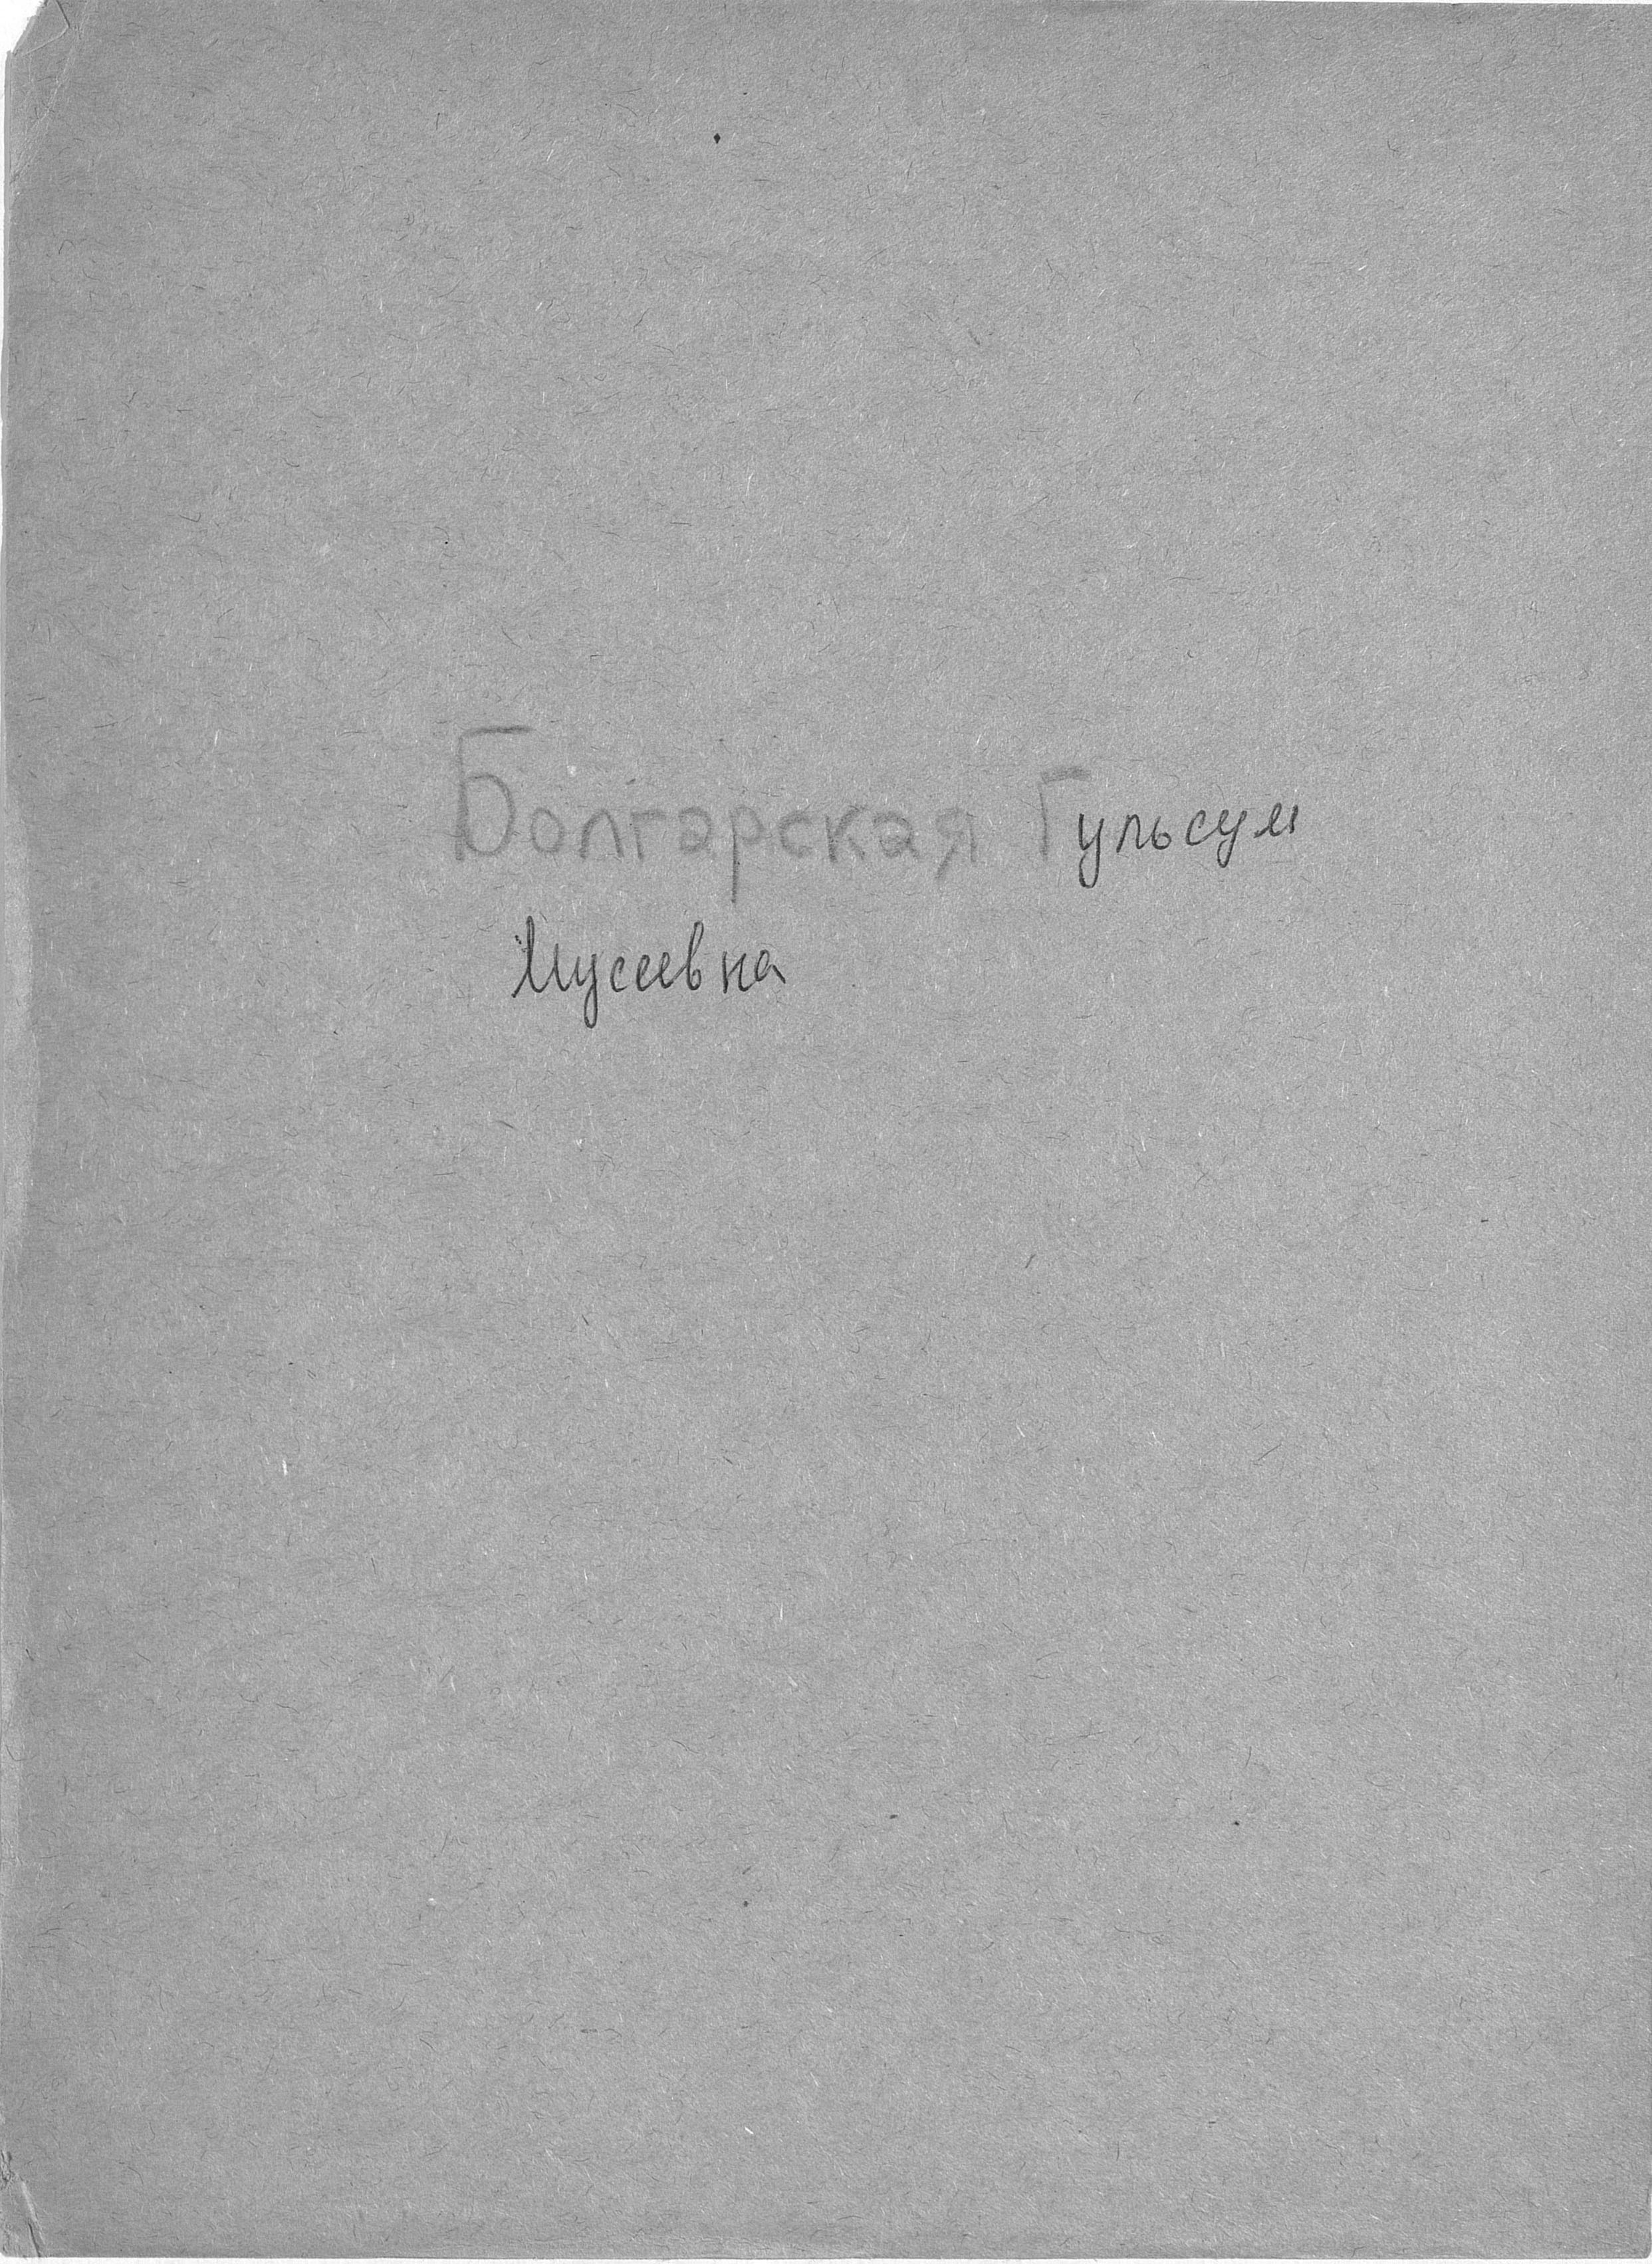 Болгарская Гульсум
Мусеевна